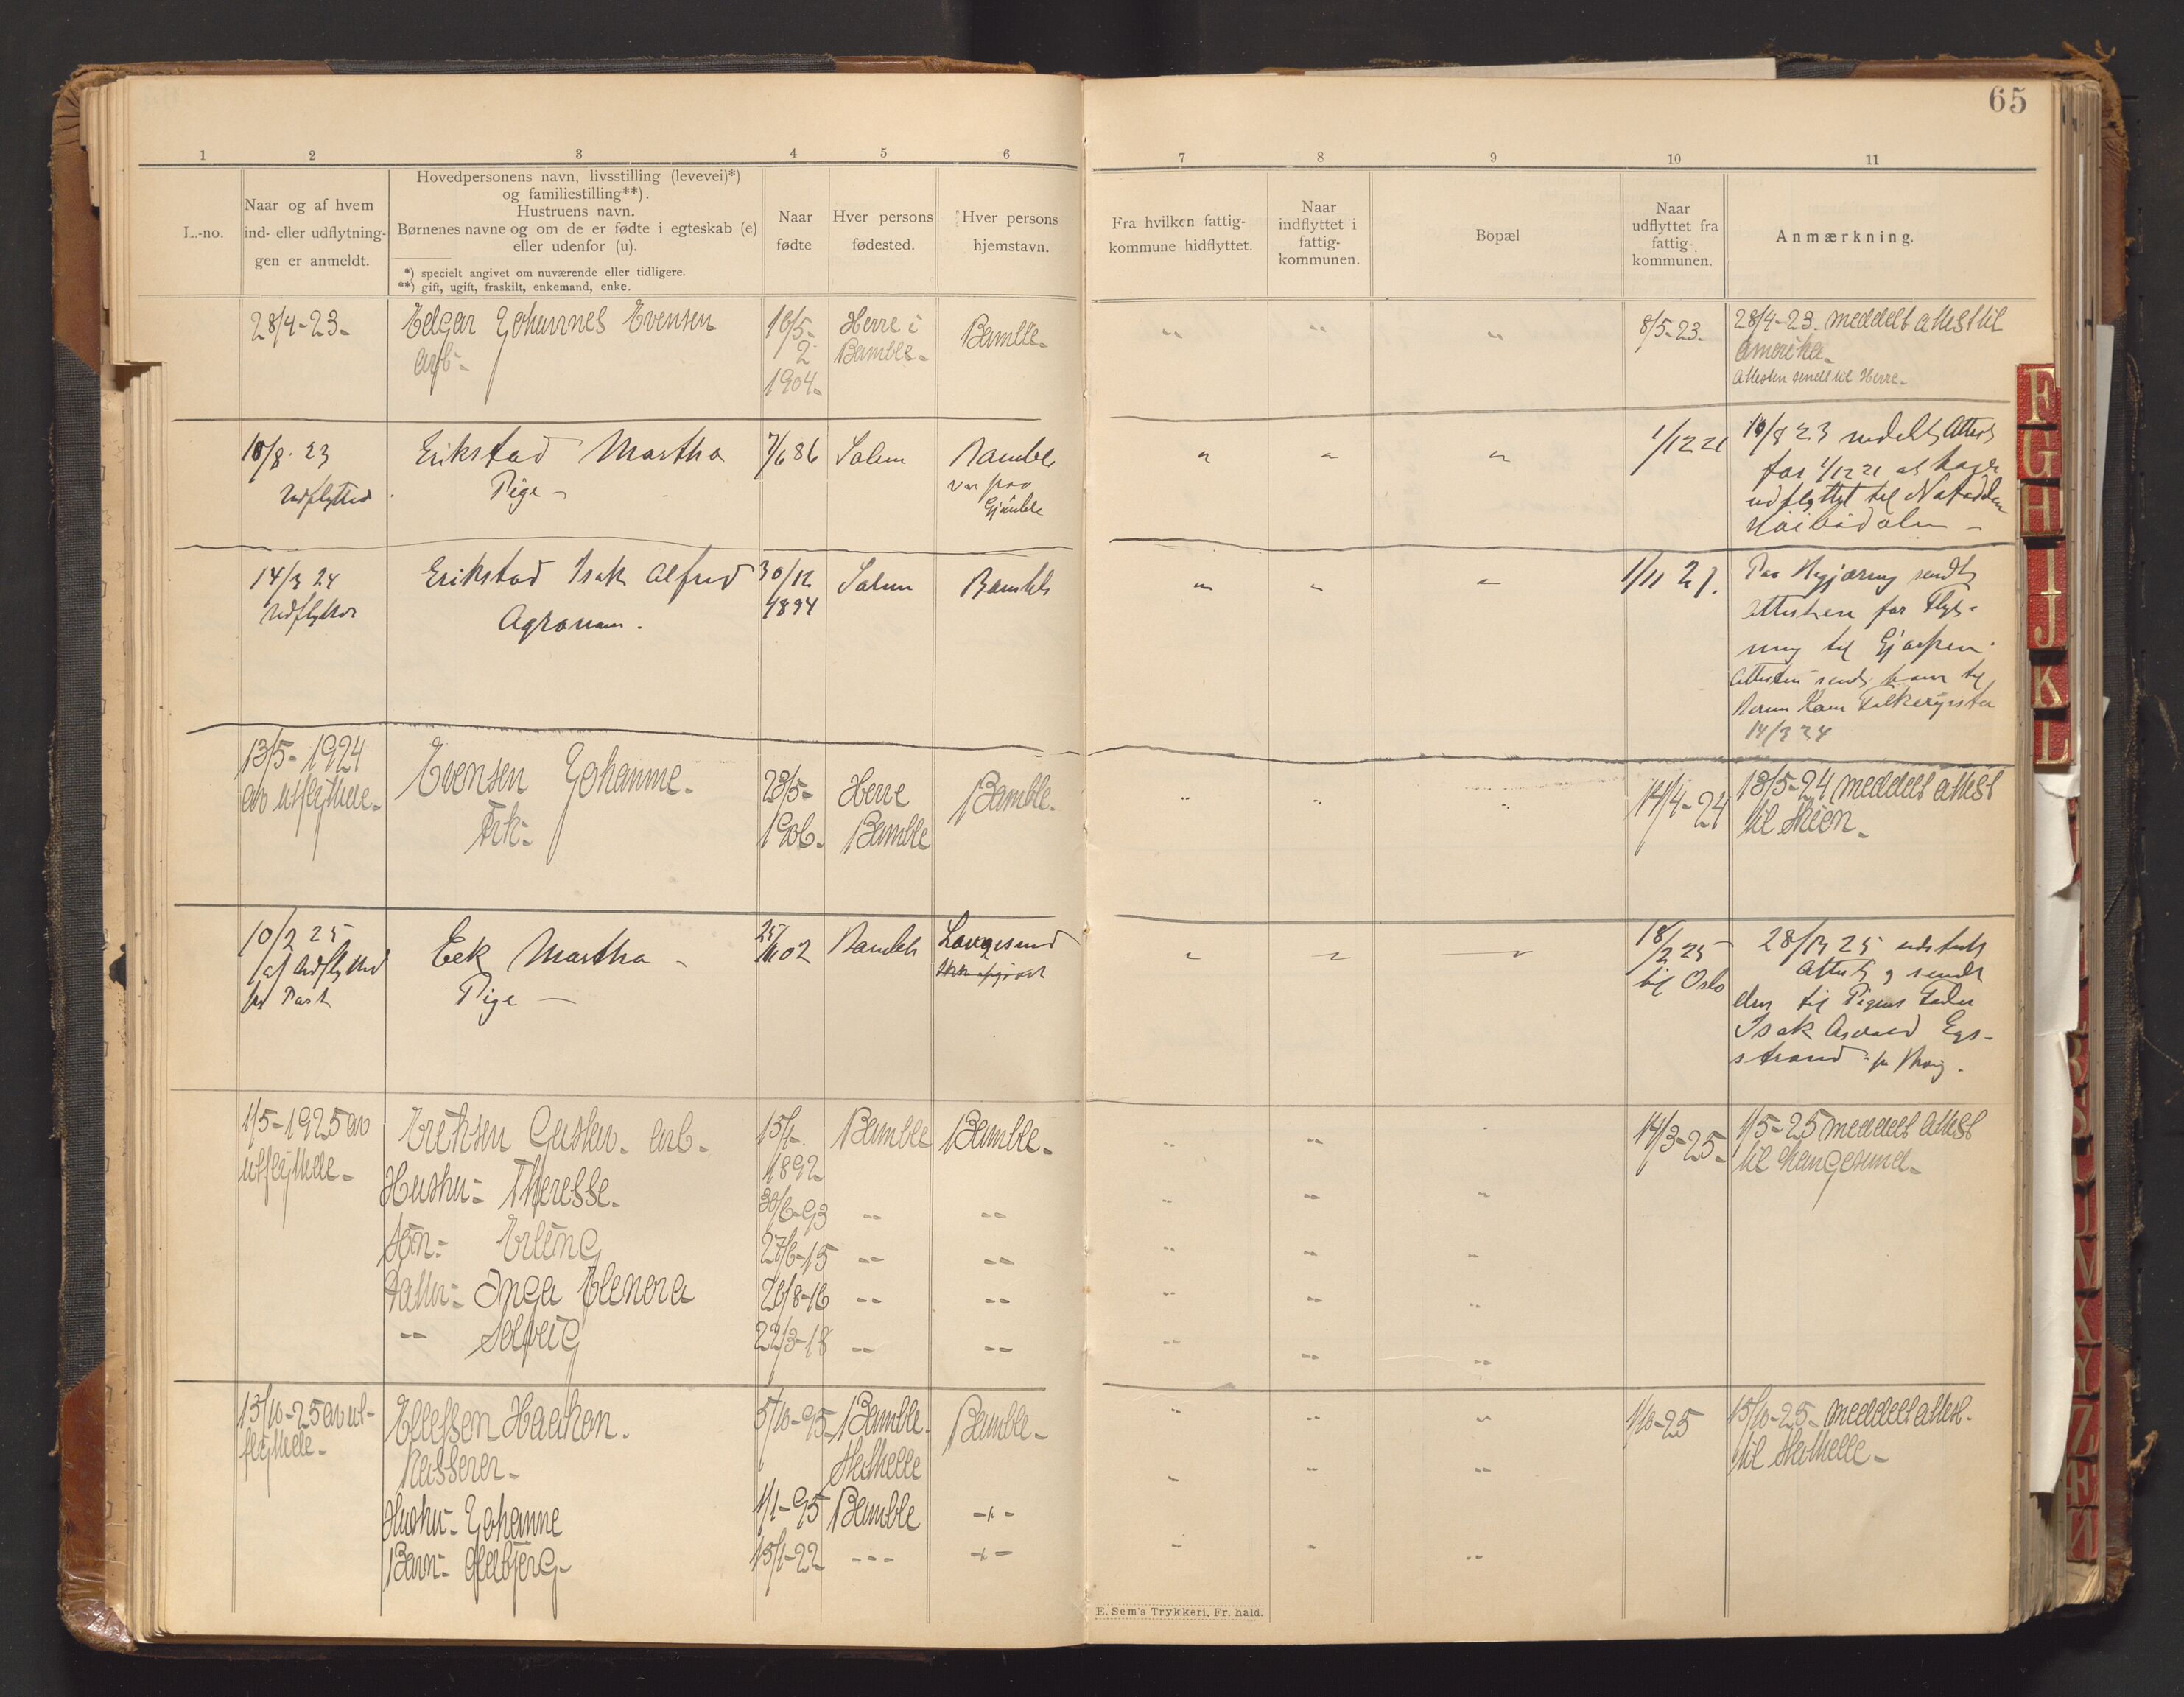 65
1 2 3 4 5 6 7 8 9 10 11
L.-no.
Naar og af hvem
ind- eller udflytnin-
gen er anmeldt.
Hovedpersonens navn, livsstilling (levevei)*)
og familiestilling**).
Hustruens navn.
Børnenes navne og om de er fødte i egteskab (e)
eller udenfor (u).
*) specielt angivet om nuværende eller tidligere.
**) gift, ugift, fraskilt, enkemand, enke.
Naar
fødte
Hver persons
fødested.
Hver persons
hjemstavn.
Fra hvilken fattig-
kommune hidflyttet.
Naar
indflyttet i
fattig-
kommunen.
Bopæl
Naar
udflyttet fra
fattig-
kommunen.
Anmærkning.
28/4-23-
Edgar Johannes Evensen
arb-
1904-
Herre i
Bamble-
Bamble-
8/5-23-
28/4-23. meddelt attest til
Amerika-
Attesten sendt til Herre-
10/8. 23
Udflytted
Erikstad Martha
Pige -
7/6 86
Solum
Bamble
1/12 21
10/8 23 Attest
for 1/12 21 at
udflyttet til Notodden
14/3 24
Erikstad Isak Alfred
Agronom.
30/12
1894
Solum
Bamble
1/11 21.
Paa Begjæring sendt
Attesten for Flyt-
ning til Gjerpen.
Folkeregister
13/5-1924
av utflyttede-
Evensen Johanne-
Frk-
23/5-
1906-
Herre
Bamble
Bamble-
14/4-24
13/5-24 meddelt attest
til Skien-
10/2 25
af Udflytted
pr Post
Eek Martha -
Pige -
02
Bamble
Langesund
18/2 25
til Oslo
Attest og sendt
den til Pigens Fader
Isak Eegs-
strand
1/5-1925 av
utflyttede-
Eriksen Gustav- arb-
1892-
Bamble
Bamble-
14/3-25-
1/5-25 meddelt attest
til Langesund-
Hustru- Theresse-
30/6-93
Søn- Erling
27/6-15
Datter- Inga Elenora
26/8-16
-"- Solveig
22/3-18
15/10-25 av ut-
flyttede-
Ellefsen Haakon.
Kasserer-
5/10-95
Bamble-
Bamble-
1/10-25
15/10-25- meddelt attest-
til Stathelle-
Stathelle
Hustru- Johanne
1/1-95
Bamble
Barn-
15/1-22
E. Sem's Trykkeri, Fr. hald.
F
G
H
I
J
K
L
V
X
Y
Z
Æ
Ø